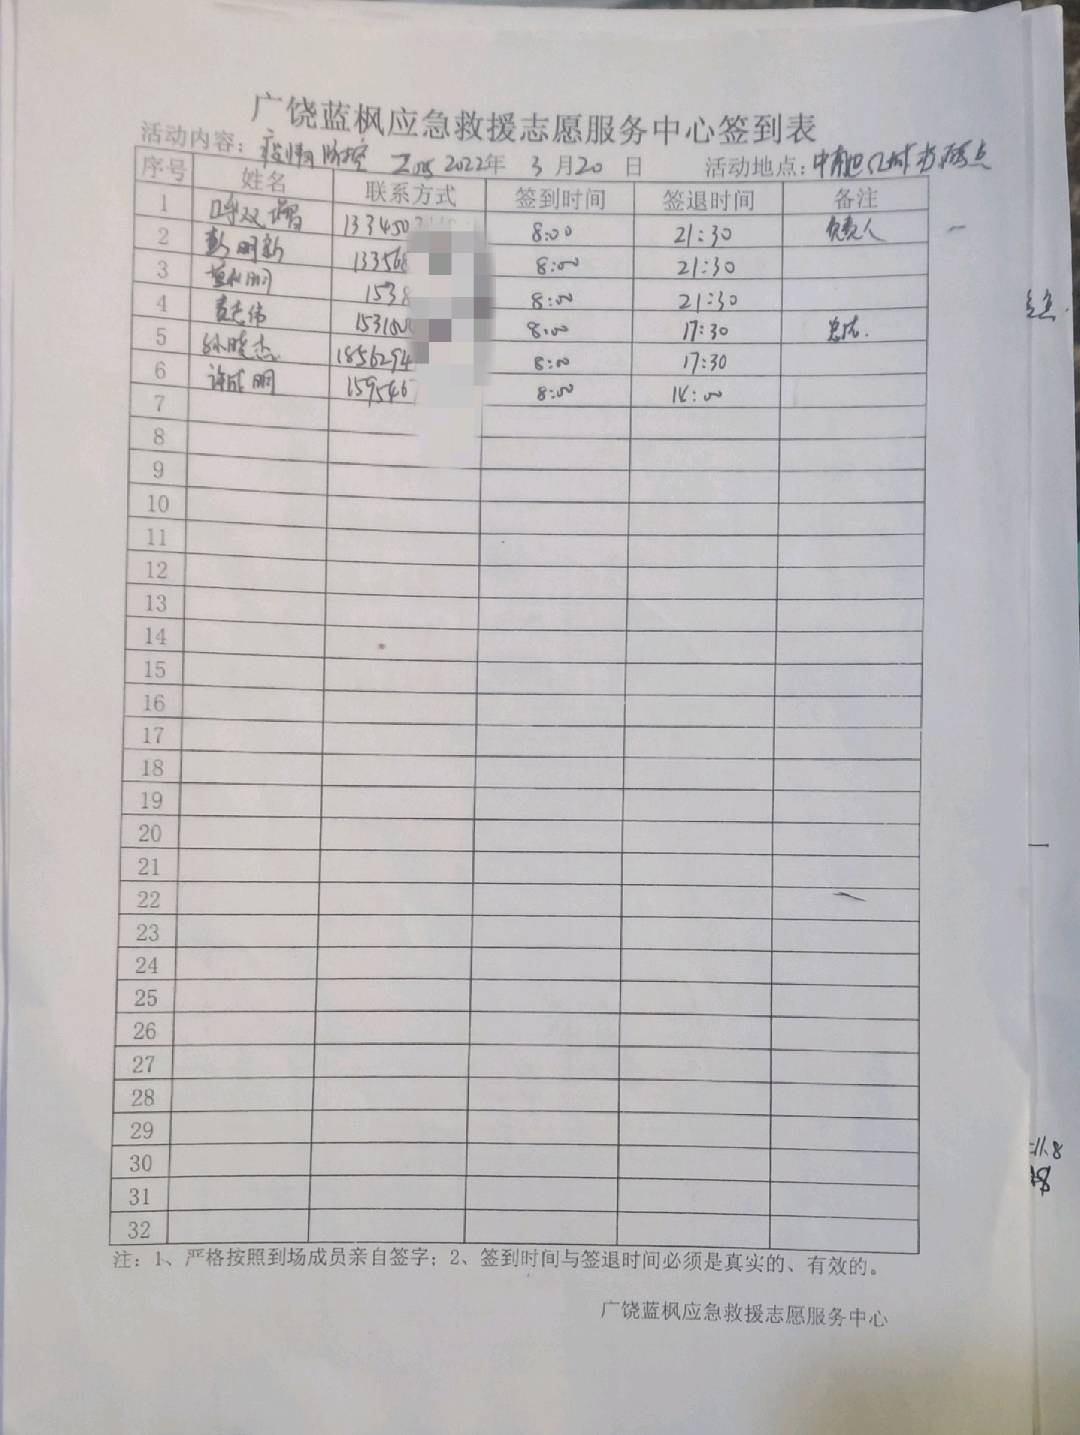 广饶蓝枫应急救援志愿服务中心签到表
活动内容：疫情防控 2022年 3月20日 活动地点：
序号 姓名 联系方式 签到时间 签退时间 备注
1 133450 8:00 21:30 负责人
2 彭明新 133568 8:00 21:30
3 1538 8:00 21:30
4 袁志伟 15318 8:00 17:30
5 孙晓杰 1856294 8:00 17:30
6 许成明 159546 8:00 14:00
7
8
9
10
11
12
13
14
15
16
17
18
19
20
21
22
23
24
25
26
27
28
29
30
31
32
注：1、严格按照到场成员亲自签字；2、签到时间与签退时间必须是真实的、有效的。
广饶蓝枫应急救援志愿服务中心